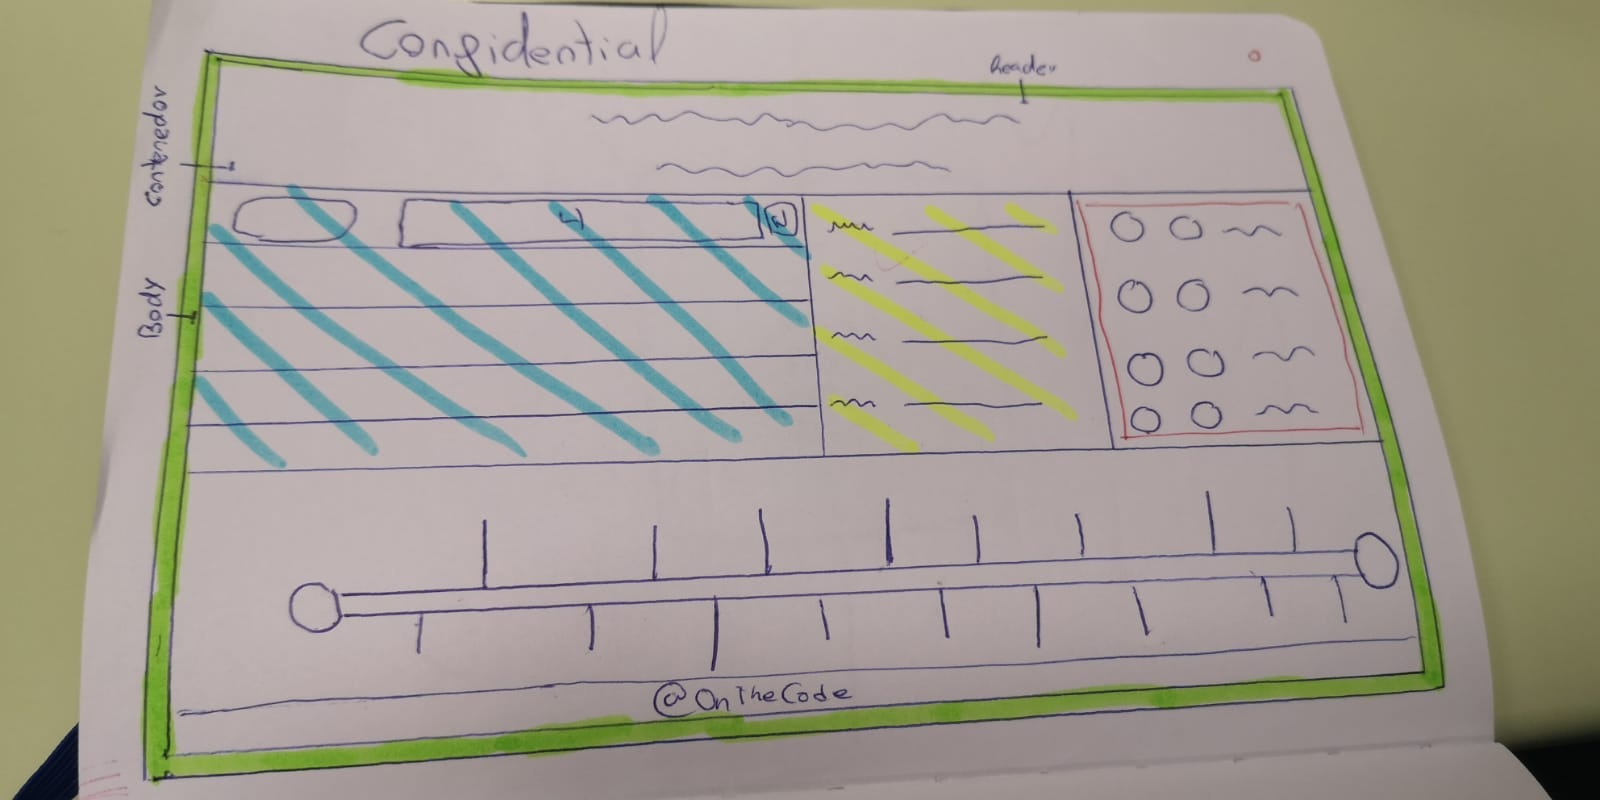 Confidential
header
contenedor
Body
4
@OnTheCode